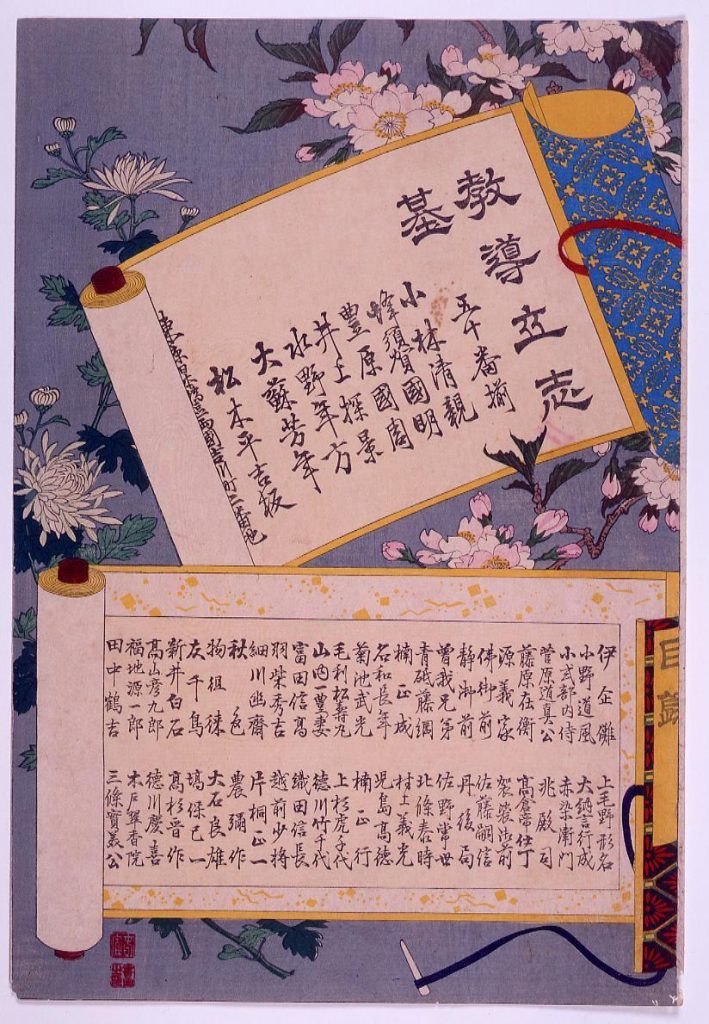 教導立志
基
五十番揃
小林清親
蜂須賀國明
豊原國周
井上探景
水野年方
大蘇芳年
松木平吉板
東京日本橋區兩國吉川町二番地
目録
伊企儺
小野道風
小式部内侍
菅原道真公
藤原在衡
源義家
佛御前
静御前
曽我兄弟
青砥藤綱
楠正成
名和長年
菊池武光
毛利松壽丸
山内一豊妻
冨田信高
羽柴秀吉
細川幽齋
秋色
物徂徠
千鳥
新井白石
高山彦九郎
福地源一郎
田中鶴吉
上毛野形名
大納言行成
赤染衛門
兆殿司
高倉帝仕丁
袈裟御前
佐藤嗣信
丹後局
佐野常世
北條泰時
村上義光
児島高徳
楠正行
上杉虎千代
徳川竹千代
織田信長
越前少将
片桐正一
農彌作
大石良雄
塙保己一
高杉晋作
徳川慶喜
木戸翠香院
三條實美公